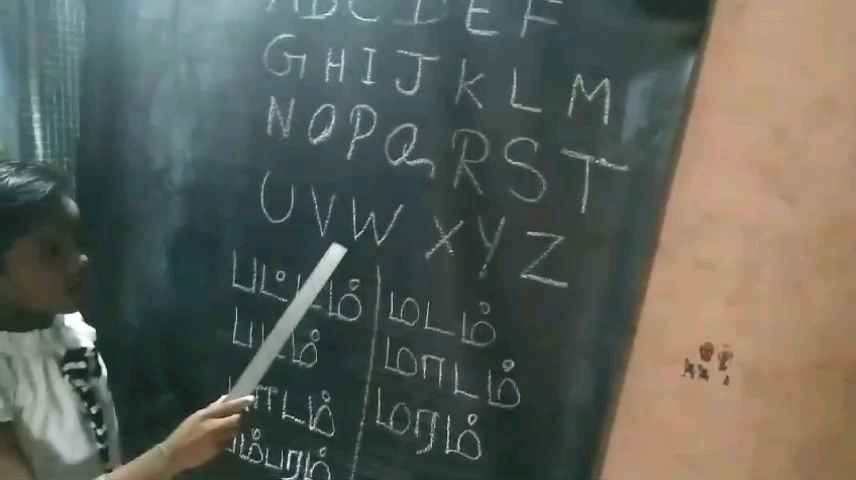 A B C D E F
G H I J K L M
N O P Q R S T
U V W X Y Z
பட்டம் மடம்
படம் மாடம்
பாடம் மரம்
பம்பரம்